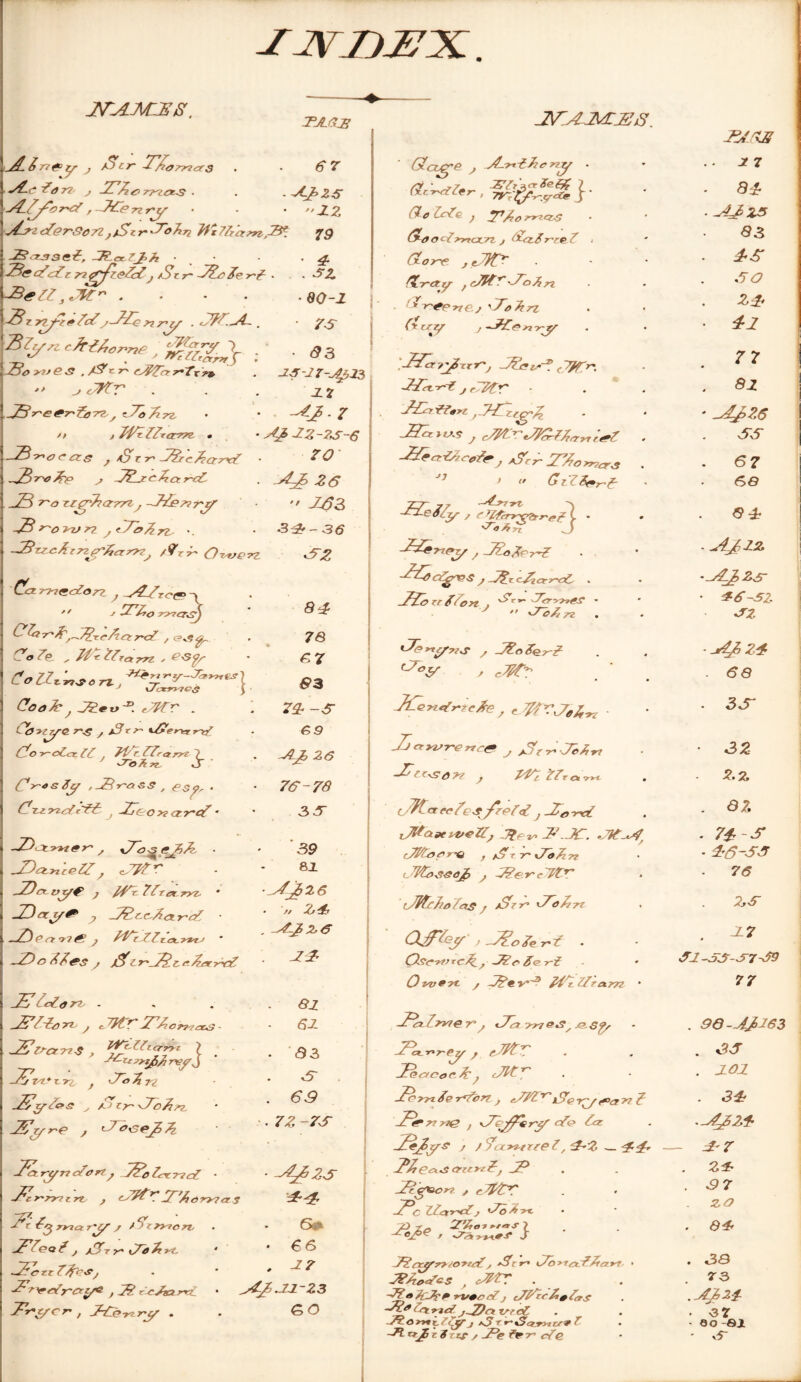 INDEX.
NAMES. PAGE
Abney, Sir Thomas 67
Acton, Thomas Ap 25
Alford, Henry " 12
Anderson, Sir John William, Bt. 79
Bassset, Ralph 4
Beddingfield, Sir Robert 52
Bell, Mr 80-1
Binfield, Henry . M.A. 75
Blyn cKthorne, Mary } William } 83
Bowes, Sir Martin 15-17-Ap 13
" , Mr 17
Breerton, John Ap. 7
" , William Ap 12-25-6
Brocas, Sir Richard 70
Broke, Richard Ap 26
Brougham, Henry " 163
Brown, John 34-36
Buckingham, Sir Owen 52
Camedon, Alice }
" , Thomas } 84
Clark, Richard, esq. 78
Cole, William, esq. 67
Collinson, Henry-James } James } 83
Cook, Revd. Mr 74-5
Conyers, Sir Gerard 69
Cordall, William } John } Ap 26
Crosby, Brass, esq. 76-78
Cunditt, Leonard 35
Damer, Joseph 39
Daniell, Mr 81
Davye, William Ap 26
Daye, Richard " 24
Deane, William Ap 26
Dobbes, Sir Richard 14
Eldon 81
Elton, Mr Thomas 61
Evans, William } Humphrey } 83
Ewin, John 5
Eyles, Sir John 69
Eyre, Joseph 72-75
Faryndon, Roland Ap 25
Firmin, Mr Thomas 44
Fitzmary, Simon 6
Fleet, Sir John 66
Foulkes, 17
Fredraye, Richard Ap 11-23
Fryer, Henry 60
NAMES. PAGE
Gage, Anthony 17
Girdler, Elizabeth } Wrifrryde } 84
Golde, Thomas Ap 25
Goodman, Gabriel 83
Gore, Mr 45
Gray, Mr John 50
Greene, John 24
Guy, Henry 41
Harpur, Revd. Mr. 77
Hart, Mr 81
Hatton, Hugh Ap 26
Haws, Mr Nathaniel 55
Heathcote, Sir Thomas 67
" , " Gilbert 68
Helby, Ann } Margaret } John } 84
Heney, Robert Ap 12
Hodges, Richard Ap 25
Houblon, Sir James 46-52
" John 52
Jenyns, Robert Ap 24
Joy, Mr 68
Kendricke, Mr. John 35
Lawrence, Sir John 32
Litson, William 22
Macclesfield, Lord 82
Maxwell, Revd. F. K. M.A, 74-5
Moore, Sir John 46-55
Mossop, Rev Mr 76
Nicholas, Sir John 25
Offley, Robert 17
Osewick, Robert 51-55-57-59
Owen, Revd. William 77
Palmer, James, esq. 98-Ap 163
Parrey, Mr 35
Peacock, Mr 101
Pemberton, Mr Serjeant 34
Penne, Jeffery de la Ap 24
Pepys, Samuel, 42-44-47
Pheasaunt, P 24
Pigeon, Mr 97
Pollard, John 20
Pope, Thomas } James } 84
Raymond, Sir Jonathan 38
Rhodes, Mr 73
Rokkerwood, Nicholas Ap 24
Roland, David 37
Romilly, Sir Samuel 80-81
Rupibus, Peter de 5